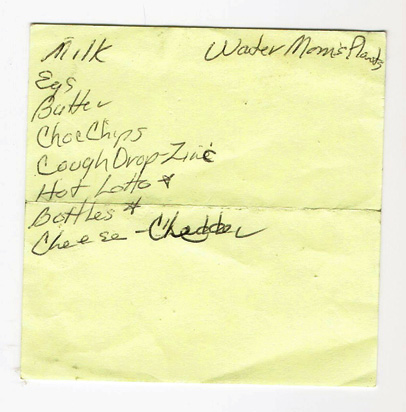 Milk
Water Mom's Plants
Egs
Butter
Choc Chips
Cough Drop-Zinc
Hot Lotto *
Bottles *
Cheese - Chedder